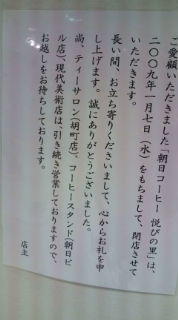 ご愛顧いただきました「朝日コーヒー 悦びの里」は、
二〇〇九年一月七日（水）をもちまして、閉店させて
いただきます。
長い間、お立ち寄りくださいまして、心からお礼を申
し上げます。誠にありがとうございました。
尚、ティーサロン（胡町店）、コーヒースタンド（朝日ビ
ル店）、現代美術店は、引き続き営業しておりますので、
お越しをお待ちしております。
店主